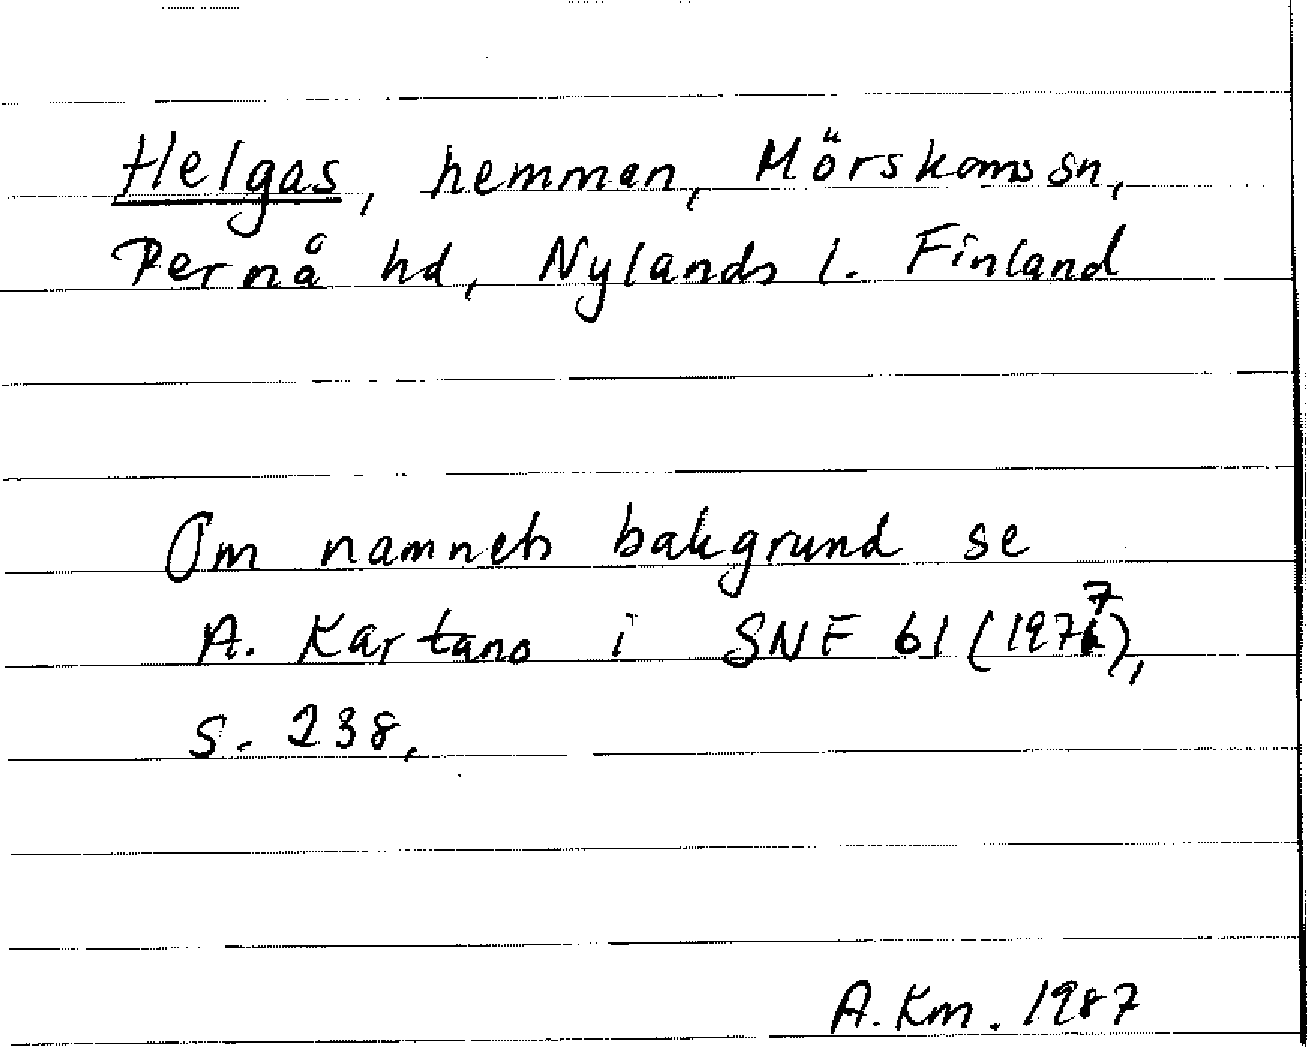 Helgas, hemman, Mörskoms sn,
Pernå hd, Nylands l. Finland
Om namnets bakgrund se
A. Kartano i SNF 61 (1977),
s. 238.
A. Km. 1987